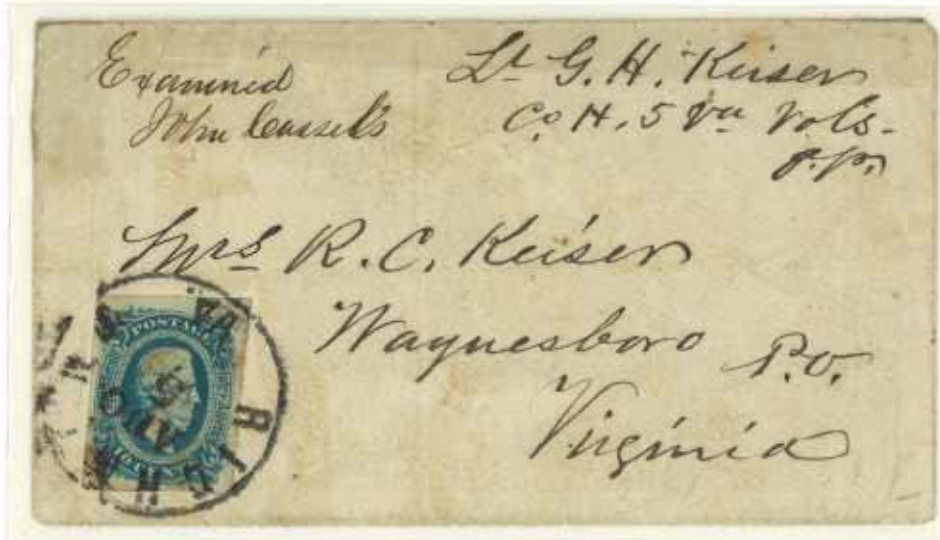 Examined
John Cassels
Lt G. H. Keiser
Co H, 5 Va Vols-
P.P.
Mrs R. C. Keiser
Waynesboro P.O.
Virginia
POSTAGE
RICHMOND VA
AUG